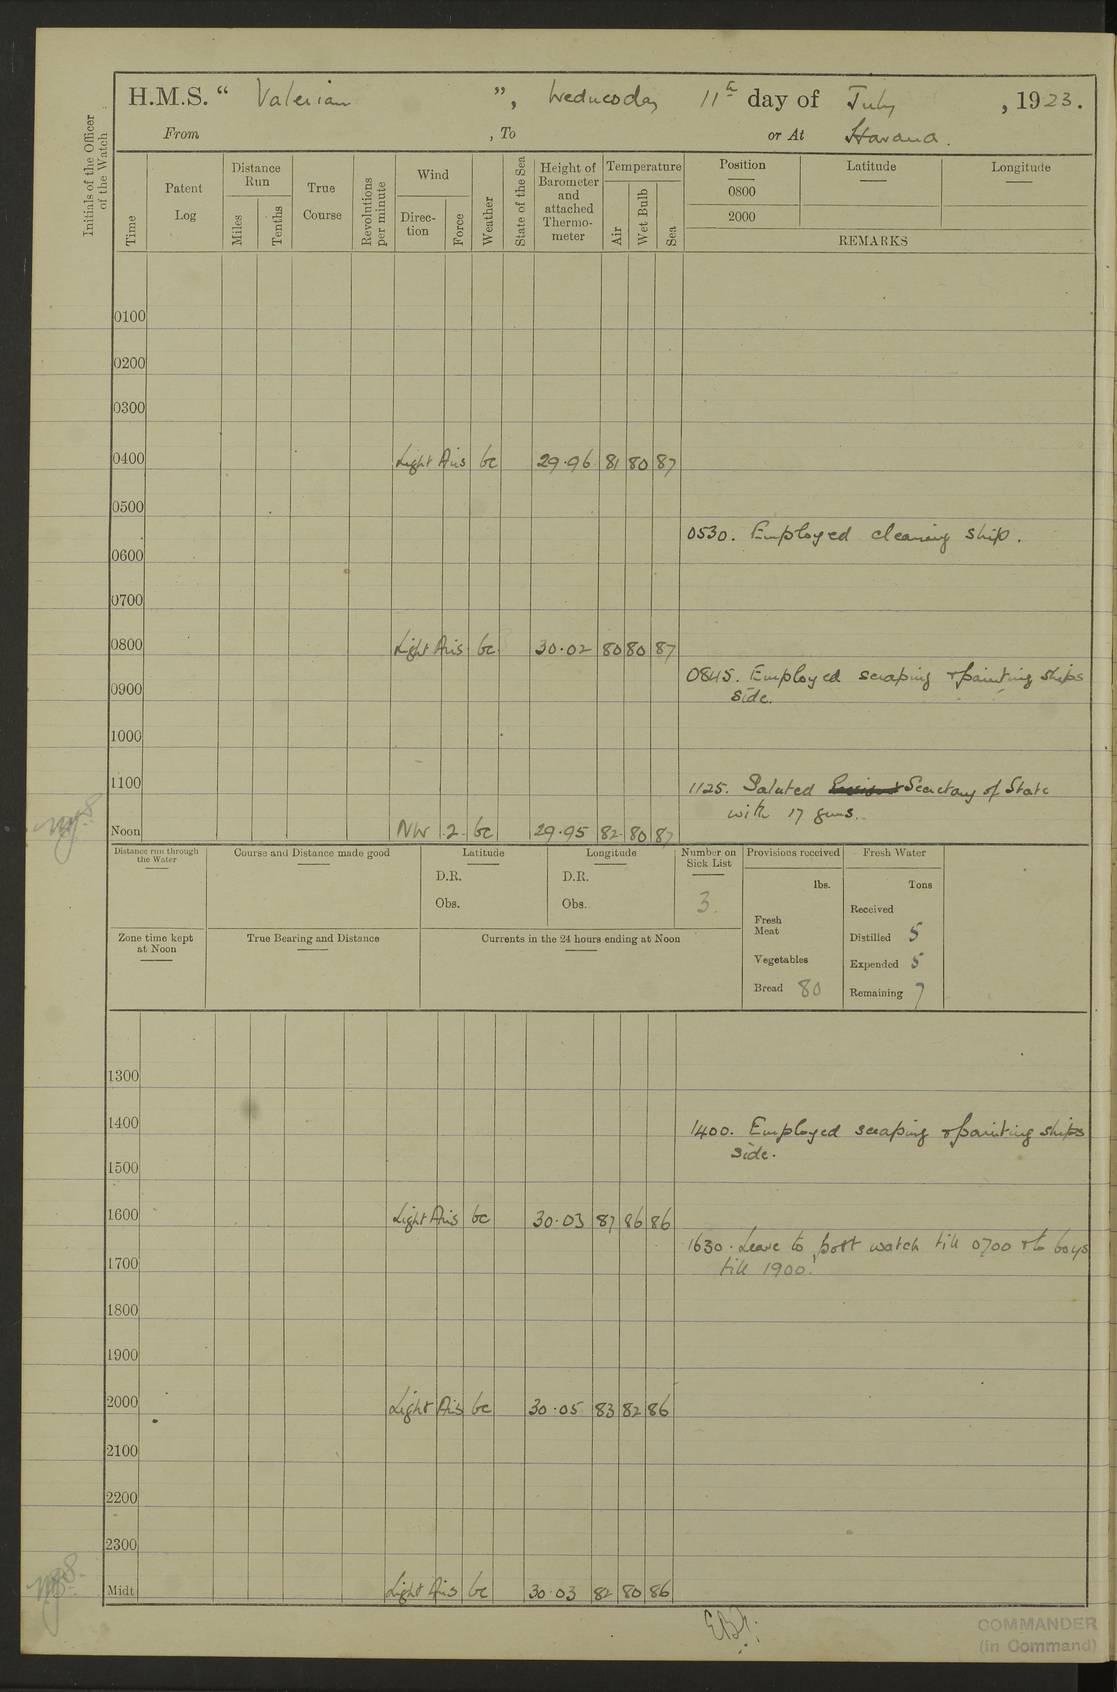 H.M.S. “ Valerian ”, Wednesday 11th day of July , 1923.
From , To or At Havana.
Initials of the Officer of the Watch
Time
Patent Log
Distance Run
Miles
Tenths
True Course
Revolutions per minute
Wind
Direc-tion
Force
Weather
State of the Sea
Height of Barometer and attached Thermo-meter
Temperature
Air
Wet Bulb
Sea
Position Latitude Longitude
0800
2000
REMARKS
0100
0200
0300
0400 Light Airs bc 29.96 81 80 87
0500
0530. Employed cleaning ship.
0600
0700
0800 Light Airs bc 30.02 80 80 87
0845. Employed scraping & painting ships
side.
0900
1000
1100
1125. Saluted Secretary of State
with 17 guns.
Noon NW 2 bc 29.95 82 80 87
Distance run through the Water
Course and Distance made good
Latitude
D.R.
Obs.
Longitude
D.R.
Obs.
Number on Sick List
3
Provisions received
lbs.
Fresh Meat
Vegetables
Bread 80
Fresh Water
Tons
Received
Distilled 5
Expended 5
Remaining 7
Zone time kept at Noon
True Bearing and Distance
Currents in the 24 hours ending at Noon
1300
1400
1400. Employed scraping & painting ships
side.
1500
1600 Light Airs bc 30.03 87 86 86
1630. Leave to port watch till 0700 & to boys
till 1900.
1700
1800
1900
2000 Light Airs bc 30.05 83 82 86
2100
2200
2300
Midt. Light Airs bc 30.03 82 80 86
COMMANDER
(in Command)